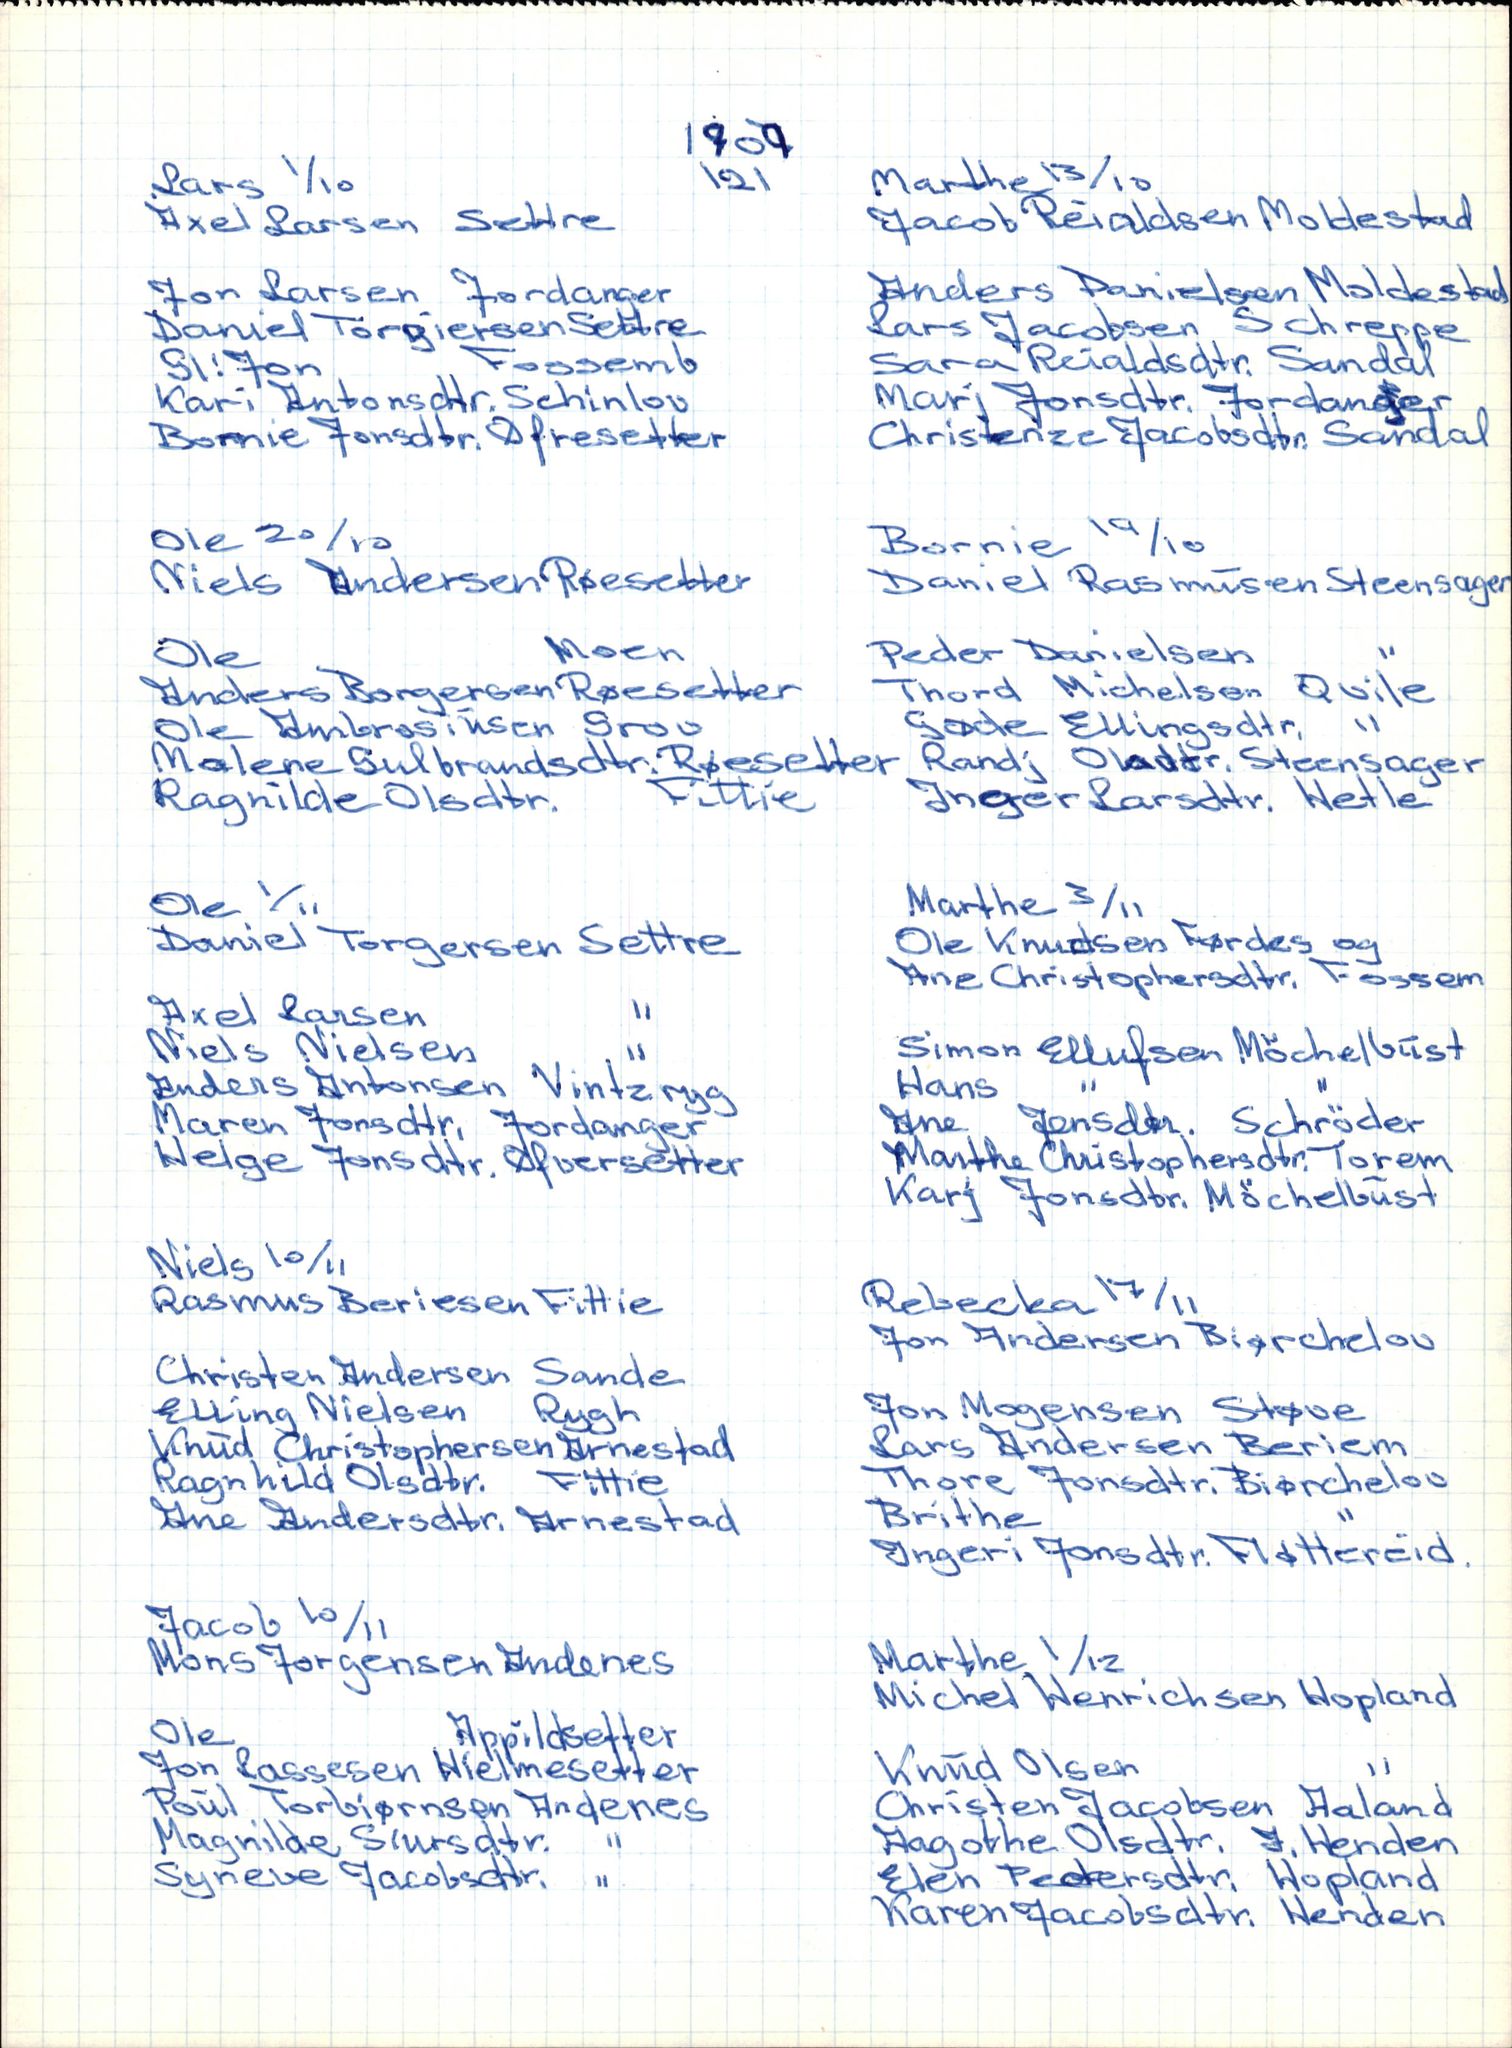 1709
121
Lars 1/10
Axel Larsen Settre
Jon Larsen Jordanger
Daniel Torgiersen Settre
Sl: Jon Fossemb
Kari Antonsdtr. Schinlov
Bornie Jonsdtr. Øfresetter
Ole 20/10
Niels Andersen Røesetter
Ole Moen
Anders Borgersen Røesetter
Ole Ambrosiüsen Grov
Malene Gulbrandsdtr. Røesetter
Ragnilde Olsdtr. Fittie
Ole 1/11
Daniel Torgersen Settre
Axel Larsen "
Niels Nielsen "
Anders Antonsen Vintzryg
Maren Jonsdtr. Jordanger
Helge Jonsdtr. Øfversetter
Niels 10/11
Rasmus Beriesen Fittie
Christen Andersen Sande
Elling Nielsen Rygh
Knüd Christophersen Arnestad
Ragnhild Olsdtr. Fittie
Ane Andersdtr. Arnestad
Jacob 10/11
Mons Jorgensen Andenes
Ole Appildsetter
Jon Lassesen Hielmesetter
Poül Torbiørnsen Andenes
Magnilde Siursdtr. "
Syneve Jacobsdtr. "
Marthe 13/10
Jacob Reialdsen Moldestad
Anders Danielsen Moldestad
Lars Jacobsen Schreppe
Sara Reialdsdtr. Sandal
Marj Jonsdtr. Jordanger
Christenze Jacobsdtr. Sandal
Bornie 19/10
Daniel Rasmüsen Steensager
Peder Danielsen "
Thord Michelsen Qvile
Gøde Ellingsdtr. "
Randj Olsdtr. Steensager
Inger Larsdtr. Hetle
Marthe 3/11
Ole Knudsen Førdes og
Ane Christophersdtr. Fossem
Simon Ellufsen Möchelbüst
Hans " "
Ane Jensdtr. Schröder
Marthe Christophersdtr. Torem
Karj Jonsdtr. Möchelbüst
Rebecka 17/11
Jon Andersen Biørchelov
Jon Mogensen Støve
Lars Andersen Beriem
Thore Jonsdtr. Biørchelov
Brithe "
Ingeri Jonsdtr. Fløttereid.
Marthe 1/12
Michel Henrichsen Hopland
Knüd Olsen "
Christen Jacobsen Aaland
Aagothe Olsdtr. J. Henden
Elen Pedersdtr. Hopland
Karen Jacobsdtr. Henden